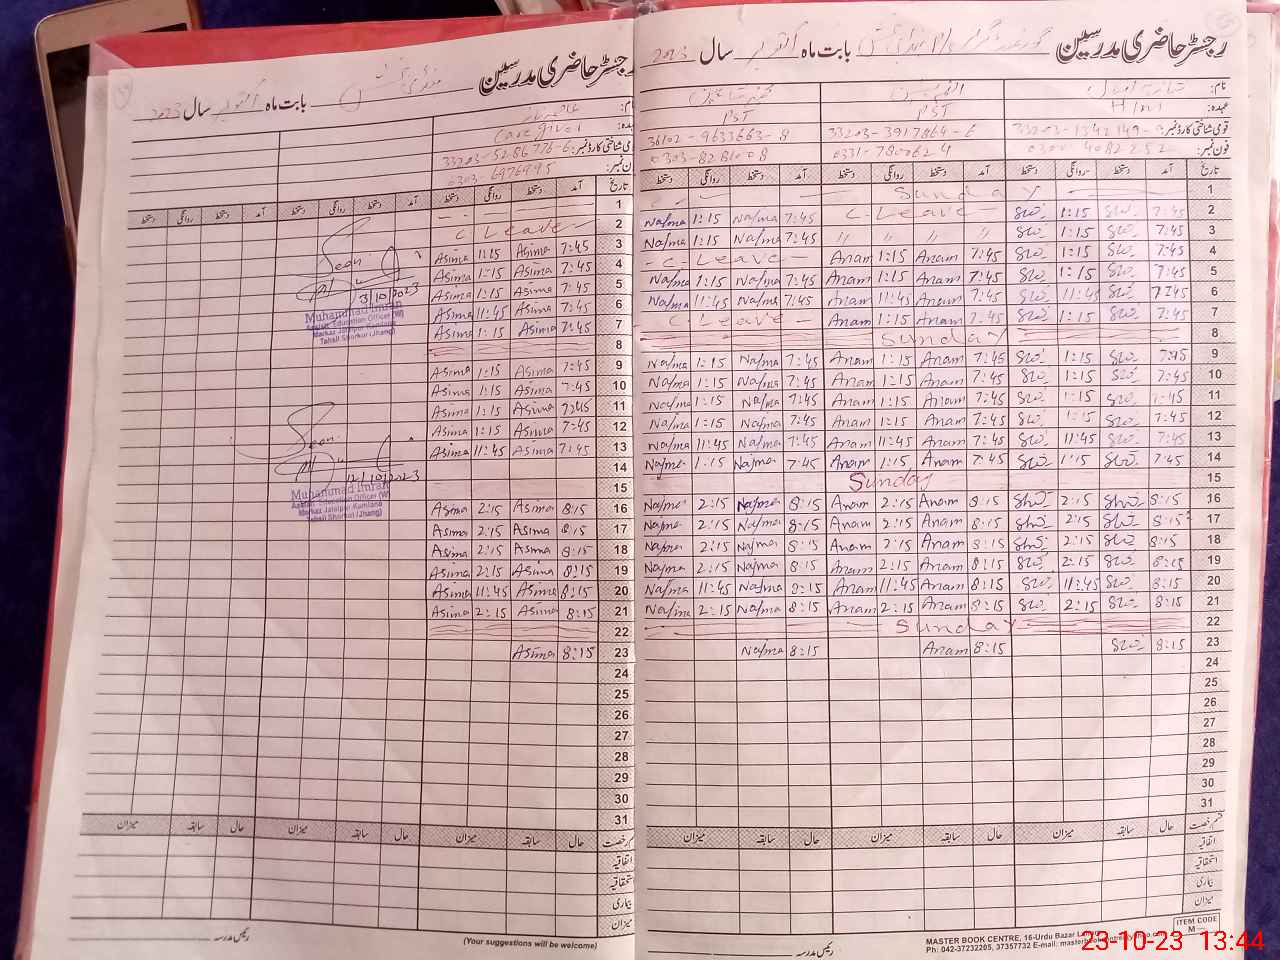 رجسٹر حاضری مدرسین بابت ماہ اکتوبر سال 2023
نام:
عہدہ: H/M PST PST
قومی شناختی کارڈ نمبر: 33203-3917864-6 36102-9633663-8
فون نمبر: 0300-4082252 0331-7800624 0303-8281008
تاریخ آمد دستخط روانگی دستخط آمد دستخط روانگی دستخط آمد دستخط روانگی دستخط
1 Sunday
2 7:45 1:15 C-Leave 7:45 Najma 1:15 Najma
3 7:45 1:15 " " " " 7:45 Najma 1:15 Najma
4 7:45 1:15 7:45 Anam 1:15 Anam - C-Leave -
5 7:45 1:15 7:45 Anam 1:15 Anam 7:45 Najma 1:15 Najma
6 7:45 11:45 7:45 Anam 11:45 Anam 7:45 Najma 11:45 Najma
7 7:45 1:15 7:45 Anam 1:15 Anam - C-Leave -
8 Sunday
9 7:45 1:15 7:45 Anam 1:15 Anam 7:45 Najma 1:15 Najma
10 7:45 1:15 7:45 Anam 1:15 Anam 7:45 Najma 1:15 Najma
11 7:45 1:15 7:45 Anam 1:15 Anam 7:45 Najma 1:15 Najma
12 7:45 1:15 7:45 Anam 1:15 Anam 7:45 Najma 1:15 Najma
13 7:45 11:45 7:45 Anam 11:45 Anam 7:45 Najma 11:45 Najma
14 7:45 1:15 7:45 Anam 1:15 Anam 7:45 Najma 1:15 Najma
15 Sunday
16 8:15 2:15 8:15 Anam 2:15 Anam 8:15 Najma 2:15 Najma
17 8:15 2:15 8:15 Anam 2:15 Anam 8:15 Najma 2:15 Najma
18 8:15 2:15 8:15 Anam 2:15 Anam 8:15 Najma 2:15 Najma
19 8:15 2:15 8:15 Anam 2:15 Anam 8:15 Najma 2:15 Najma
20 8:15 11:45 8:15 Anam 11:45 Anam 8:15 Najma 11:45 Najma
21 8:15 2:15 8:15 Anam 2:15 Anam 8:15 Najma 2:15 Najma
22 Sunday
23 8:15 8:15 Anam 8:15 Najma
24
25
26
27
28
29
30
31
قسم رخصت حال سابقہ میزان حال سابقہ میزان حال سابقہ میزان
اتفاقیہ
استحقاقیہ
بیماری
میزان
رئیس مدرسہ
ITEM CODE
M
MASTER BOOK CENTRE, 16-Urdu Bazar
Ph: 042-37232205, 37357732 E-mail:
رجسٹر حاضری مدرسین بابت ماہ اکتوبر سال 2023
نام:
عہدہ: Care giver
قومی شناختی کارڈ نمبر: 33203-5286776-6
فون نمبر: 0303-6976995
تاریخ آمد دستخط روانگی دستخط آمد دستخط روانگی دستخط آمد دستخط روانگی دستخط
1
2 C Leave
3 7:45 Asima 1:15 Asima
4 7:45 Asima 1:15 Asima
5 7:45 Asima 1:15 Asima
6 7:45 Asima 11:45 Asima
7 7:45 Asima 1:15 Asima
8
9 7:45 Asima 1:15 Asima
10 7:45 Asima 1:15 Asima
11 7:45 Asima 1:15 Asima
12 7:45 Asima 1:15 Asima
13 7:45 Asima 11:45 Asima
14
15
16 8:15 Asima 2:15 Asima
17 8:15 Asima 2:15 Asima
18 8:15 Asima 2:15 Asima
19 8:15 Asima 2:15 Asima
20 8:15 Asima 11:45 Asima
21 8:15 Asima 2:15 Asima
22
23 8:15 Asima
24
25
26
27
28
29
30
31
Seen
3/10/2023
Muhammad Imran
Asstt: Education Officer (W)
Markaz Jalalpur Kamlana
Tehsil Shorkot (Jhang)
Seen
12/10/2023
Muhammad Imran
Asstt: Education Officer (W)
Markaz Jalalpur Kamlana
Tehsil Shorkot (Jhang)
رخصت حال سابقہ میزان حال سابقہ میزان حال سابقہ میزان
اتفاقیہ
استحقاقیہ
بیماری
میزان
رئیس مدرسہ
(Your suggestions will be welcome)
23-10-23 13:44